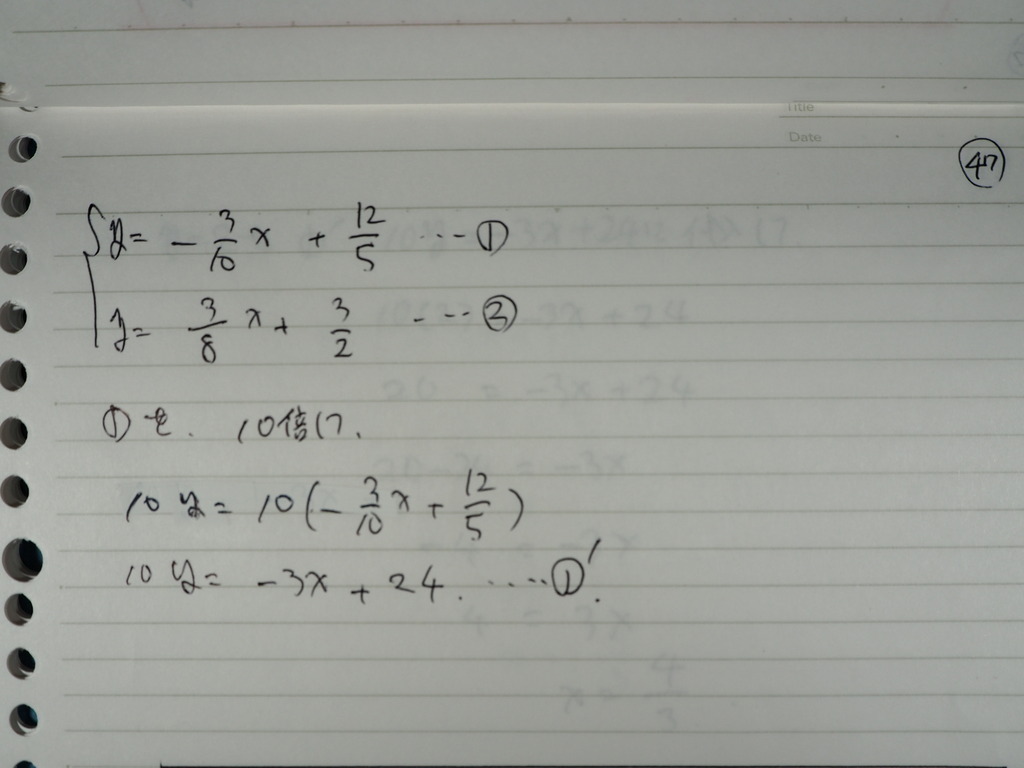 Title
Date
㊼
{ y = - 3/10 x + 12/5 ... ①
y = 3/8 x + 3/2 ... ②
①を. 10倍して.
10y = 10(- 3/10 x + 12/5)
10y = -3x + 24. .... ①'.